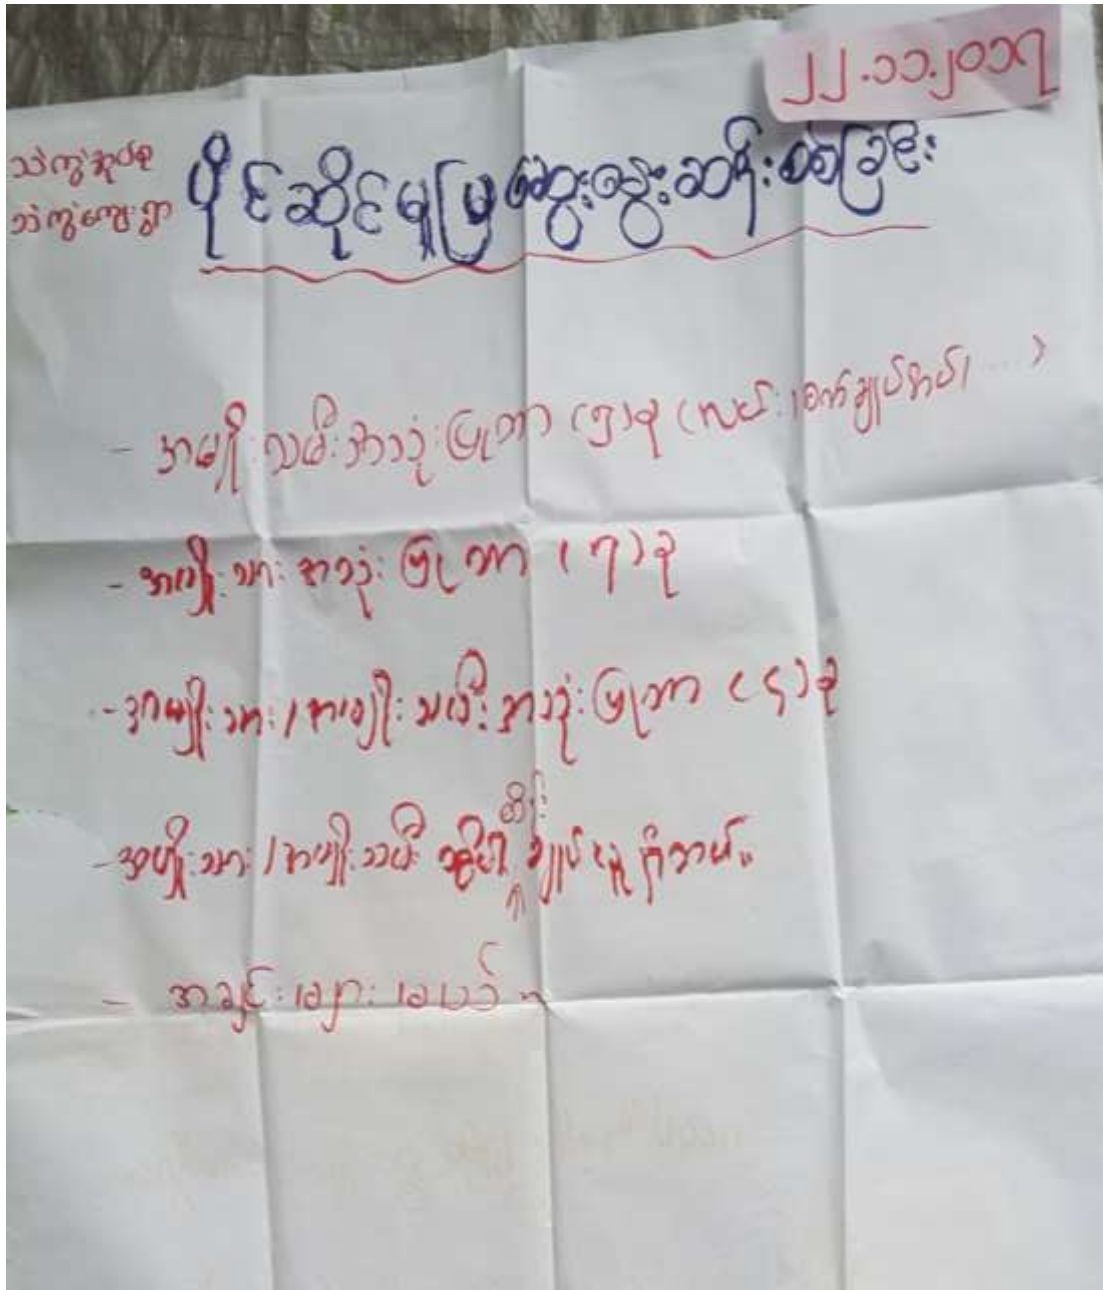 ၂၂.၁၁.၂၀၁၇
သဲကွဲအုပ်စု
သဲကွဲကျေးရွာ
ပိုင်ဆိုင်မှုမြှဆွေးနွေးဆန်းစစ်ခြင်း
- အမျိုးသမီးအသုံးပြုတာ (၅)ခု (လင်း၊စက်ချုပ်အပ်၊ ....)
- အမျိုးသားအသုံးပြုတာ (၇)ခု
- အမျိုးသား/အမျိုးသမီးအသုံးပြုတာ (၄)ခု
- အမျိုးသား/အမျိုးသမီး ထိန်းချုပ်မှုရှိတယ်။
- အချင်းများမယ်